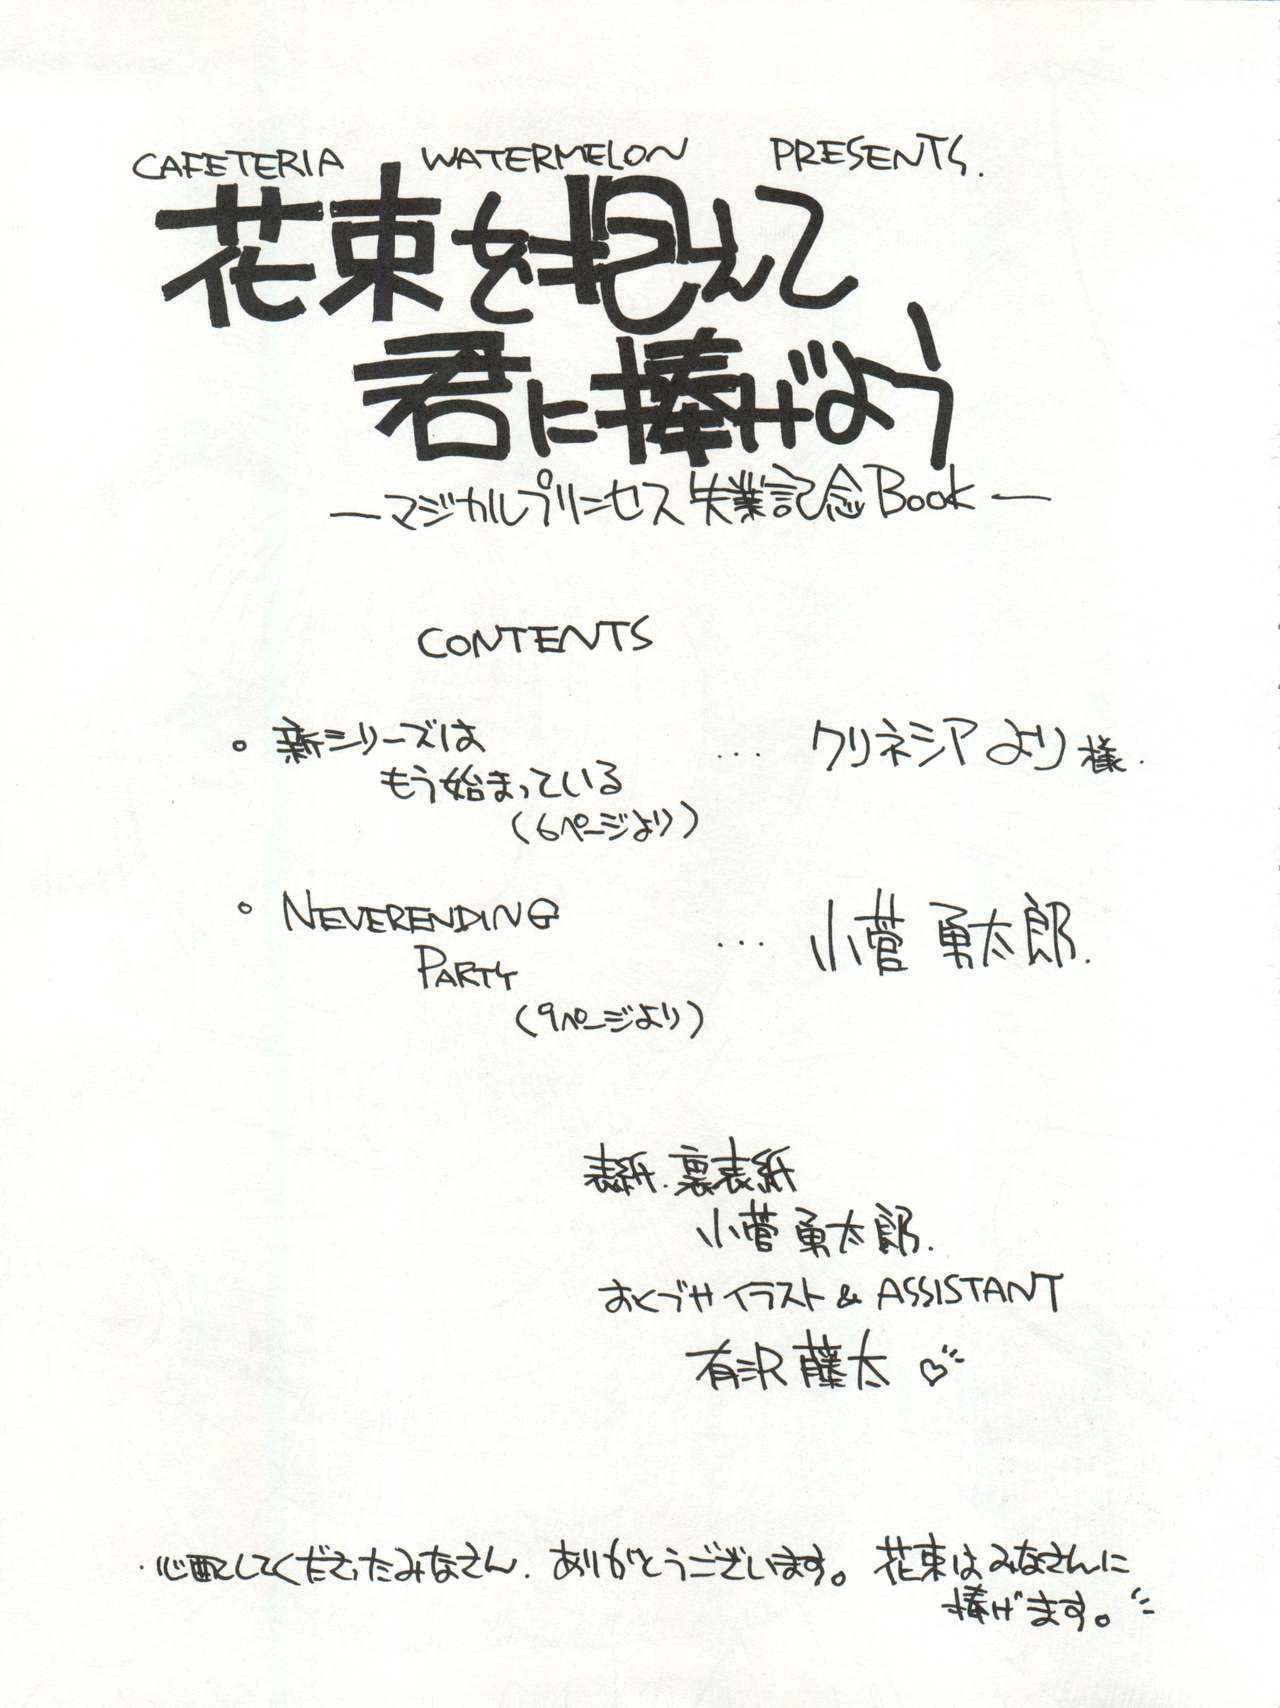 CAFETERIA WATERMELON PRESENTS.
花束を抱えて
君に捧げよう
—マジカルプリンセス失業記念Book—
CONTENTS
。新シリーズは ... クリネシアより様.
もう始まっている
(6ページより)
。NEVERENDING ... 小菅勇太郎.
PARTY
(9ページより)
表紙.裏表紙
小菅勇太郎.
おくづけイラスト&ASSISTANT
有沢藤太♡
・心配してくださったみなさん.ありがとうございます。花束はみなさんに
捧げます。